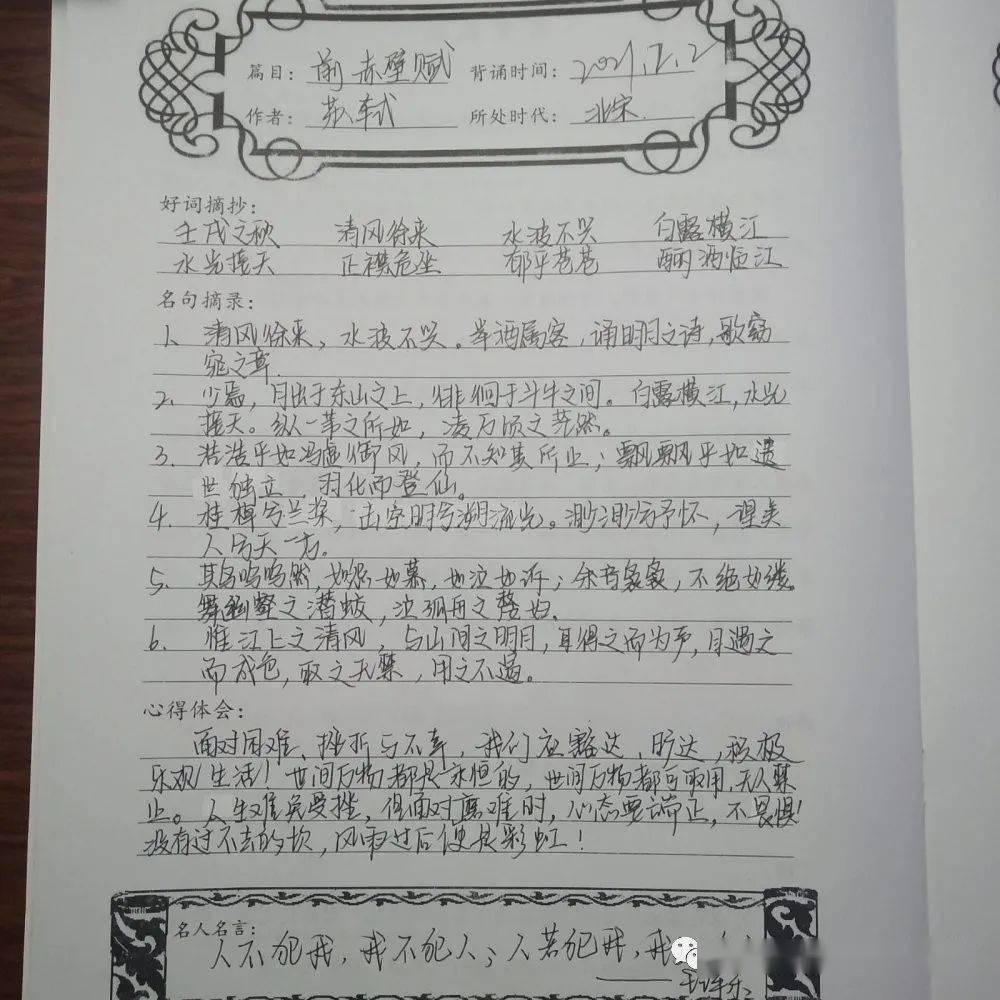 篇目：前赤壁赋 背诵时间：2021.2.2
作者：苏轼 所处时代：北宋
好词摘抄：
壬戌之秋 清风徐来 水波不兴 白露横江
水光接天 正襟危坐 郁乎苍苍 酾酒临江
名句摘录：
1、清风徐来，水波不兴。举酒属客，诵明月之诗，歌窈
窕之章.
2、少焉，月出于东山之上，徘徊于斗牛之间。白露横江，水光
接天。纵一苇之所如，凌万顷之茫然。
3、浩浩乎如冯虚御风，而不知其所止；飘飘乎如遗
世独立，羽化而登仙。
4、桂棹兮兰桨，击空明兮溯流光。渺渺兮予怀，望美
人兮天一方。
5、其声呜呜然，如怨如慕，如泣如诉；余音袅袅，不绝如缕。
舞幽壑之潜蛟，泣孤舟之嫠妇.
6、惟江上之清风，与山间之明月，耳得之而为声，目遇之
而成色，取之无禁，用之不竭。
心得体会：
面对困难、挫折与不幸，我们应豁达，旷达，积极
乐观生活！世间万物都是永恒的，世间万物都可取用，无人禁
止。人生难免受挫，但面对磨难时，心态要端正，不畏惧！
没有过不去的坎，风雨过后便是彩虹！
名人名言：
人不犯我，我不犯人；人若犯我，我